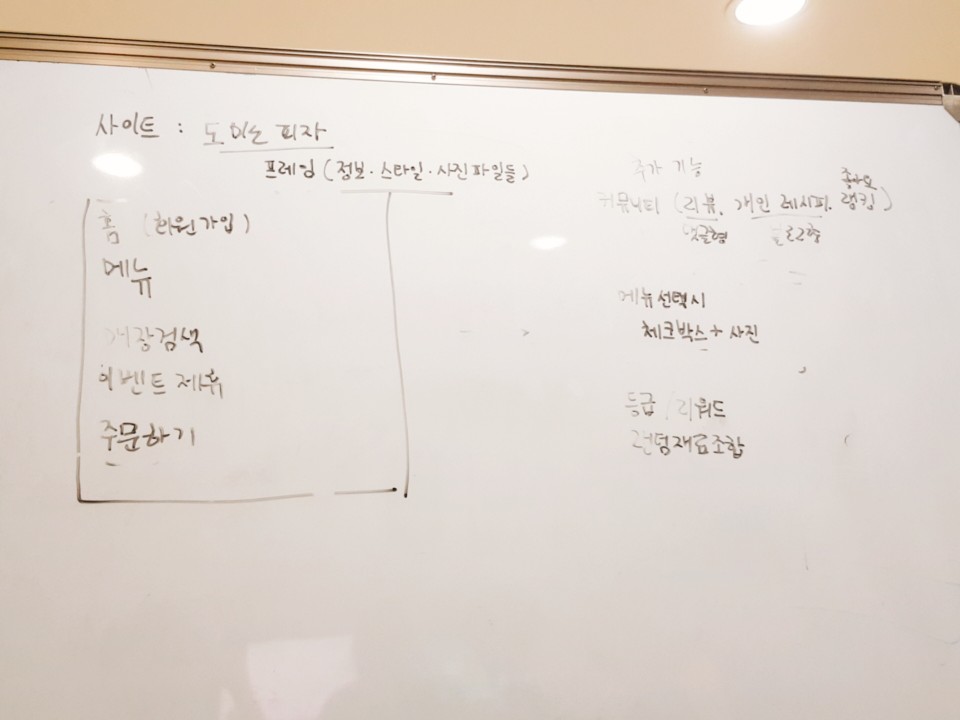 사이트 : 도미노 피자
프레임 (정보 · 스타일 · 사진파일들)
홈 (회원가입)
메뉴
매장검색
이벤트 제휴
주문하기
추가 기능
좋아요
커뮤니티 (리뷰, 개인 레시피, 랭킹)
댓글형 블로그형
메뉴선택시
체크박스 + 사진
등급 / 리워드
랜덤재료조합